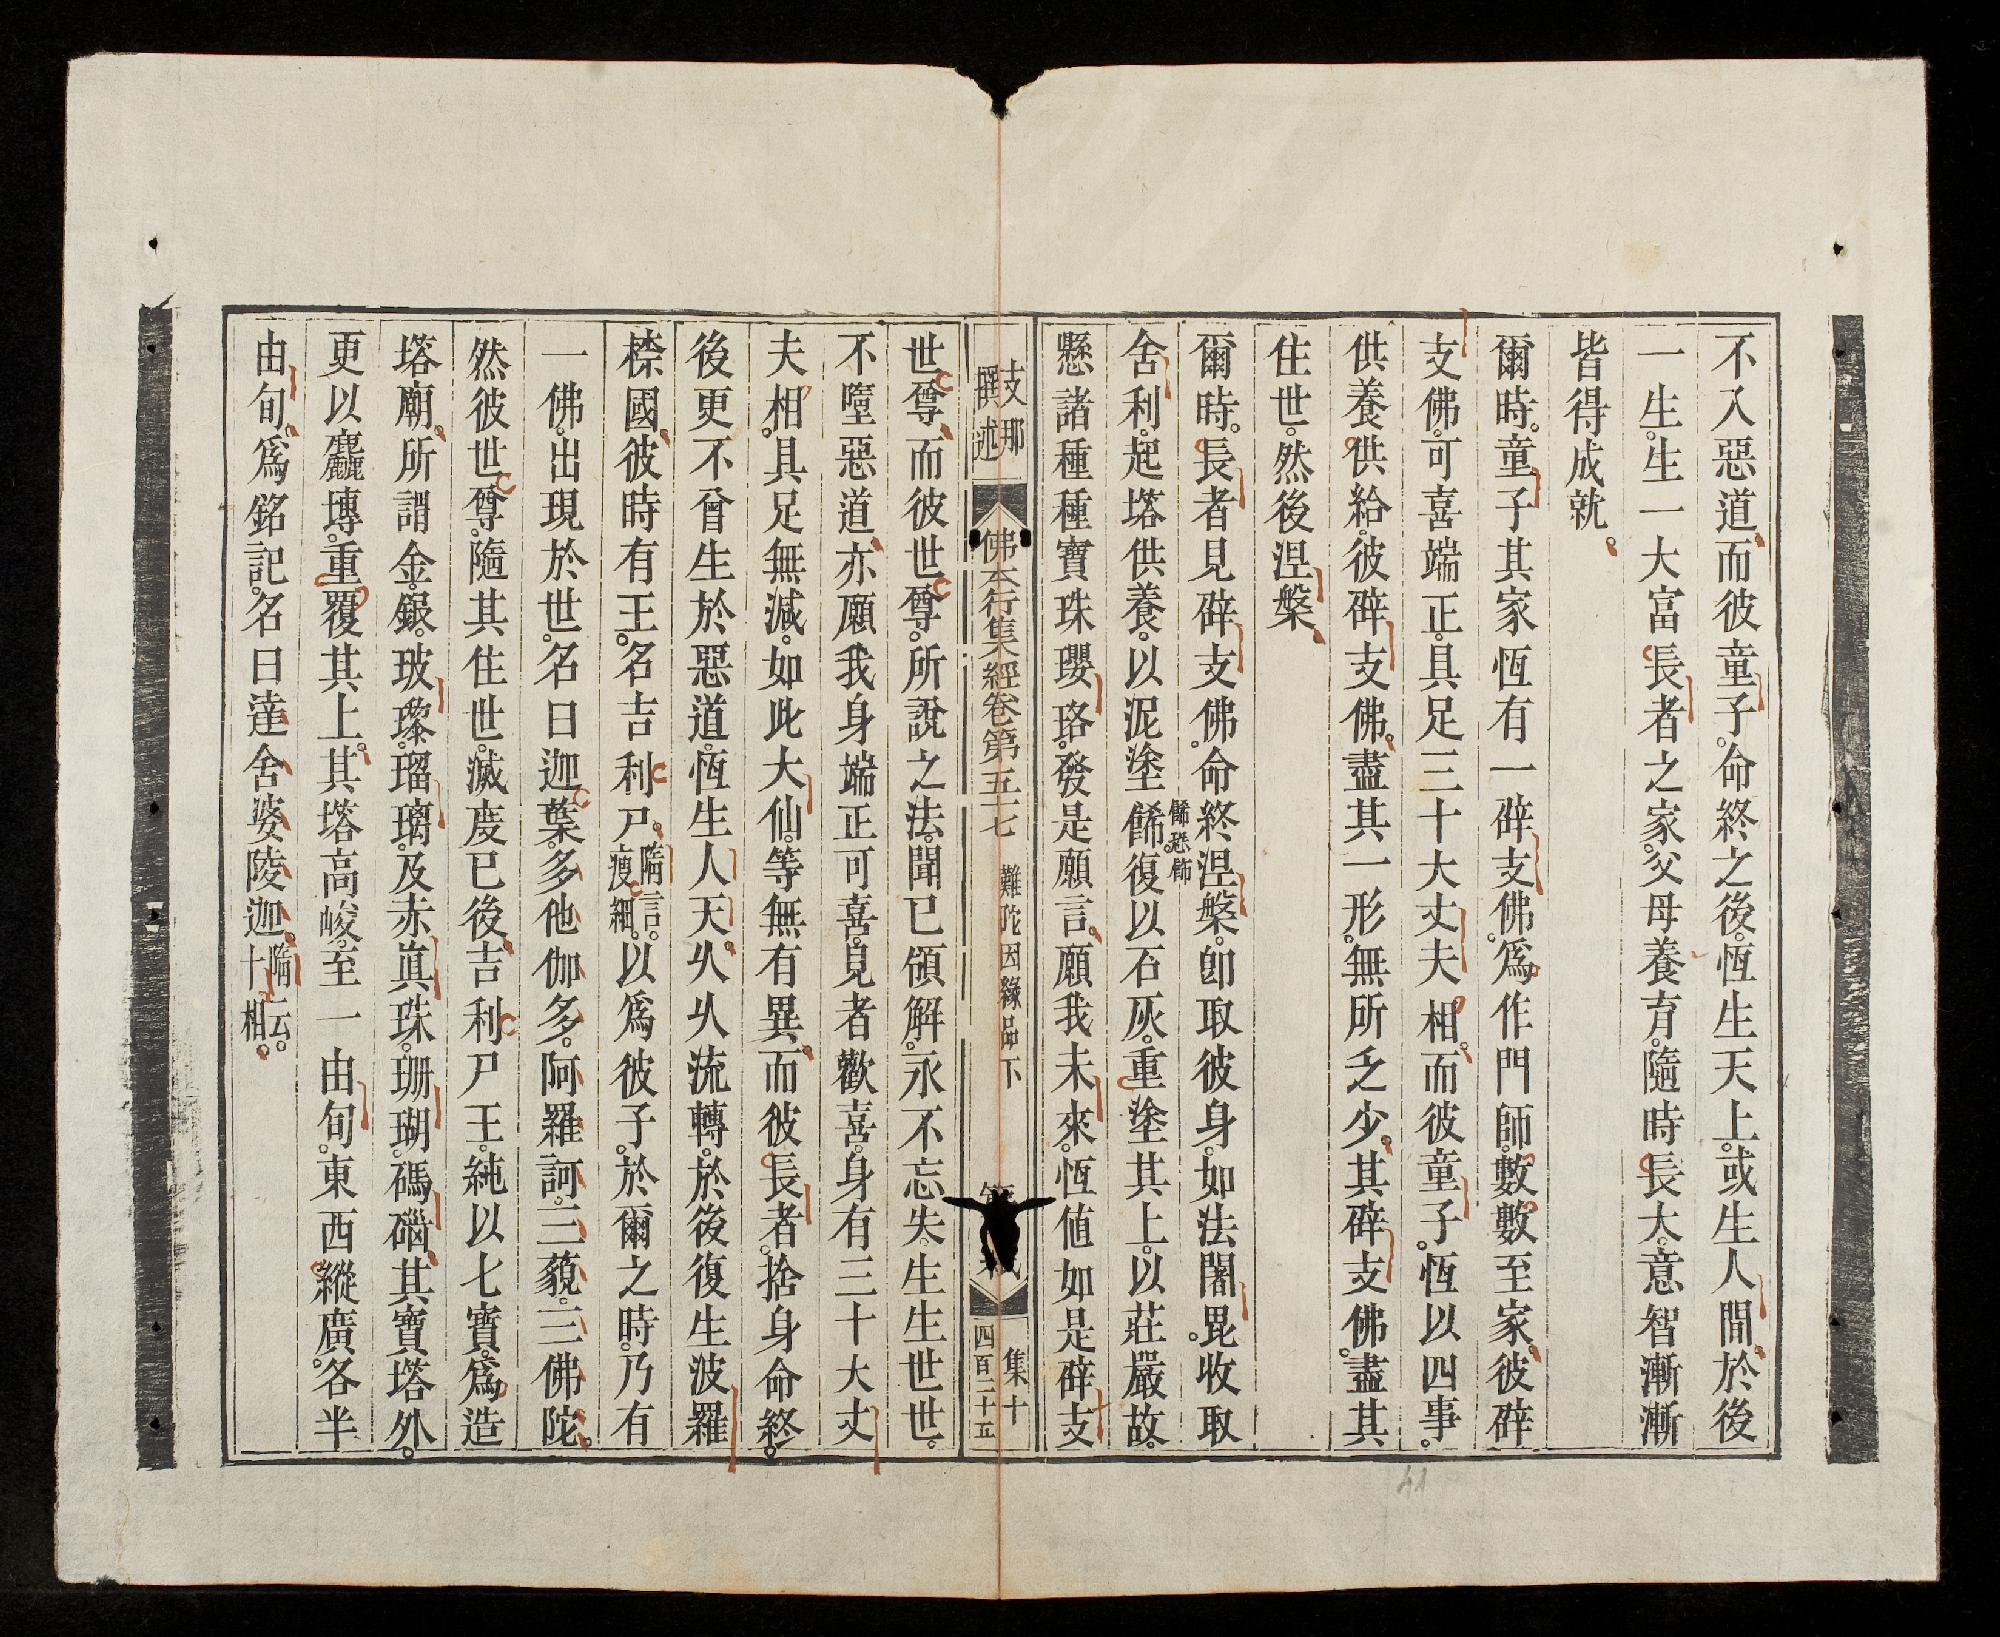 不入惡道。而彼童子。命終之後。恆生天上。或生人間。於後
一生。生一大富長者之家。父母養育。隨時長大。意智漸漸
皆得成就。
爾時。童子其家恆有一辟支佛。爲作門師。數數至家。彼辟
支佛。可喜端正。具足三十大丈夫相。而彼童子。恆以四事。
供養。供給。彼辟支佛。盡其一形。無所乏少。其辟支佛。盡其
住世。然後涅槃。
爾時。長者見辟支佛。命終涅槃。卽取彼身。如法闍毘。收取
舍利。起塔供養。以泥塗餙。復以石灰。重塗其上。以莊嚴故。
餙恐飾
懸諸種種寶珠瓔珞。發是願言。願我未來。恆值如是辟支
支那
撰述
佛本行集經卷第五七 難陀因緣品下
集十
四百二十五
世尊。而彼世尊。所說之法。聞已領解。永不忘失。生生世世。
不墮惡道。亦願我身端正可喜。見者歡喜。身有三十大丈
夫相。具足無減。如此大仙。等無有異。而彼長者。捨身命終。
後更不曾生於惡道。恆生人天。久久流轉。於後復生波羅
㮈國。彼時有王。名吉利尸。隋言。瘦細。以爲彼子。於爾之時。乃有
一佛。出現於世。名曰迦葉。多他伽多。阿羅訶。三藐。三佛陀。
然彼世尊。隨其住世。滅度已後。吉利尸王。純以七寶。爲造
塔廟。所謂金。銀。玻瓈。瑠璃。及赤真珠。珊瑚。碼碯。其寶塔外。
更以麤塼。重覆其上。其塔高峻。至一由旬。東西縱廣。各半
由旬。爲銘記。名曰達舍婆陵迦。隋云。十相。